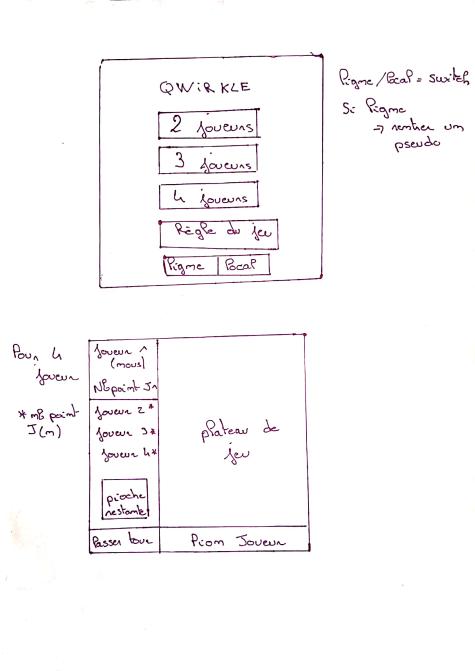 QWIRKLE
2 joueurs
3 joueurs
4 joueurs
Règle du jeu
ligne local
ligne/local = switch
Si ligne
⇒ rentrer un
pseudo
Pour 4
joueur
* nb point
J(n)
Joueur 1
(nous)
Nb point J1
Joueur 2*
Joueur 3*
Joueur 4*
pioche
restante
Passer tour
plateau de
jeu
Pion Joueur